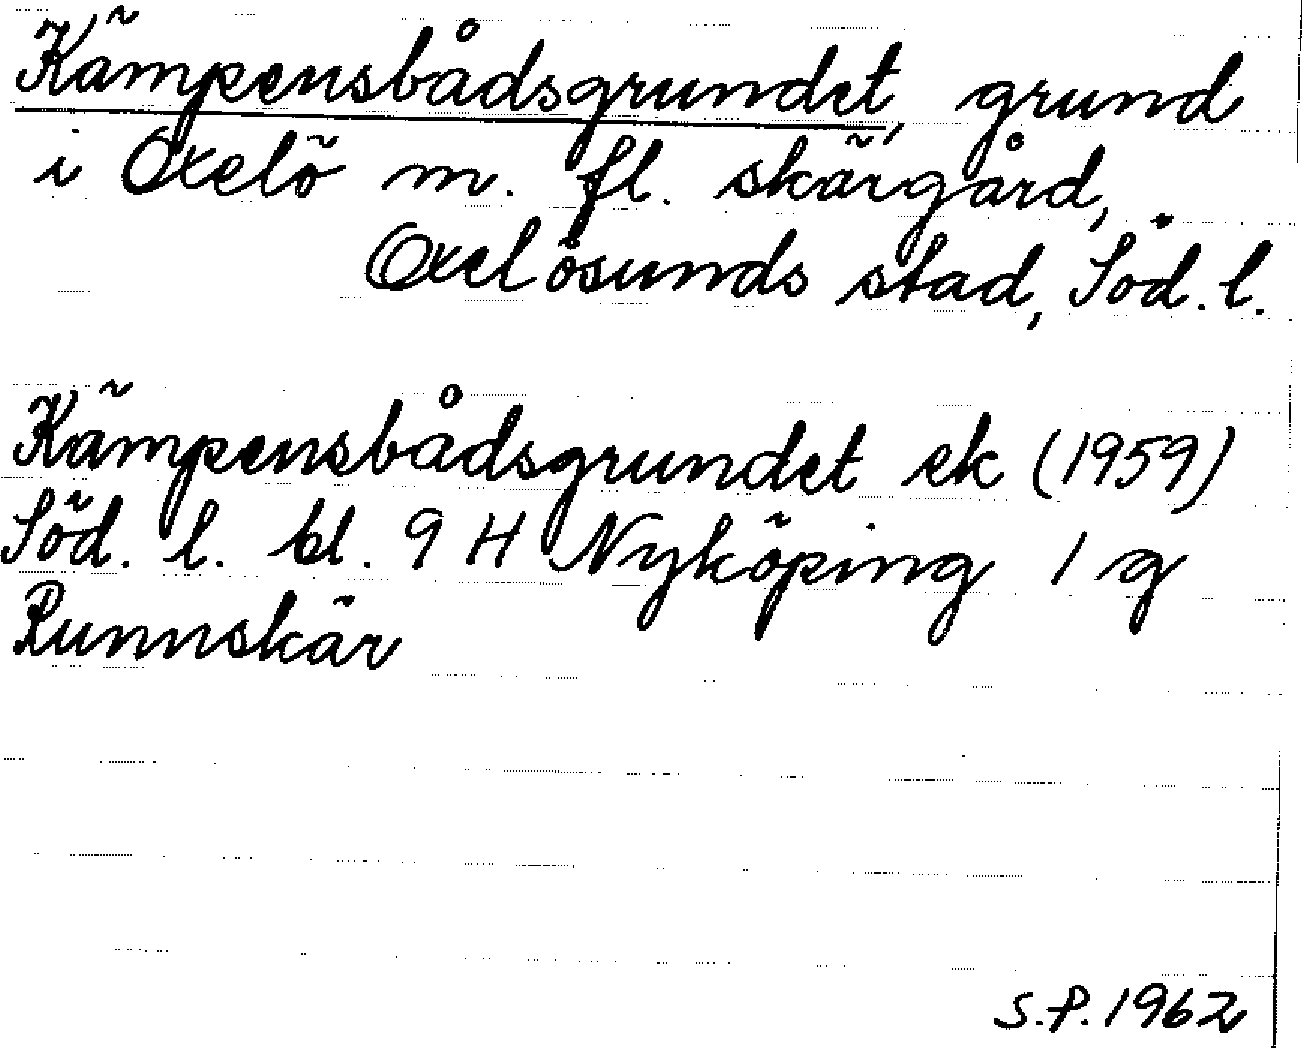 Kämpensbådsgrundet, grund
i Oxelö m. fl. skärgård,
Oxelösunds stad, Söd. l.
Kämpensbådsgrundet ek (1959)
Söd. l. bl. 9 H Nyköping 1 g
Runnskär
S.P. 1962